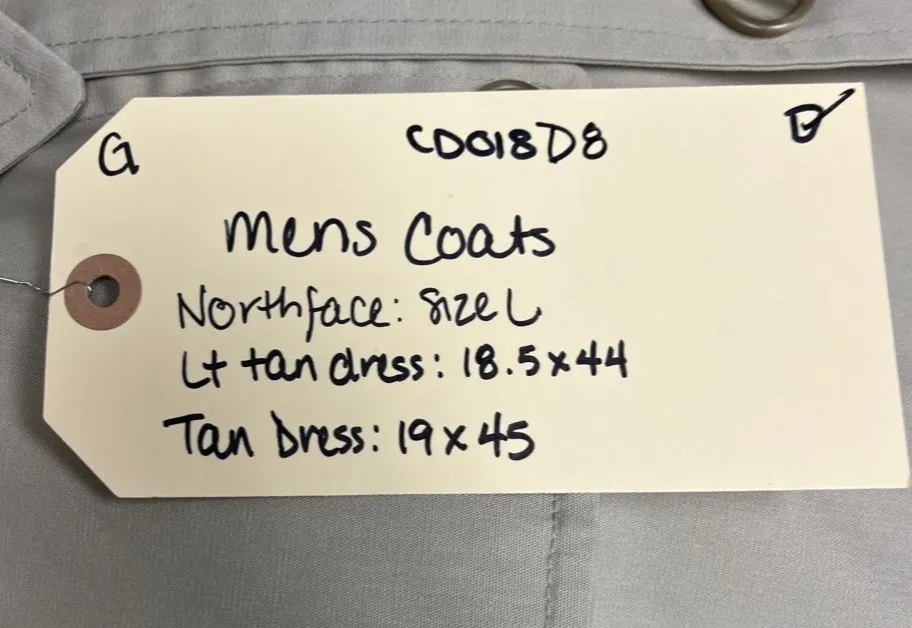 G CD018D8 B
Mens Coats
Northface: Size L
Lt tan dress: 18.5x44
Tan Dress: 19x45